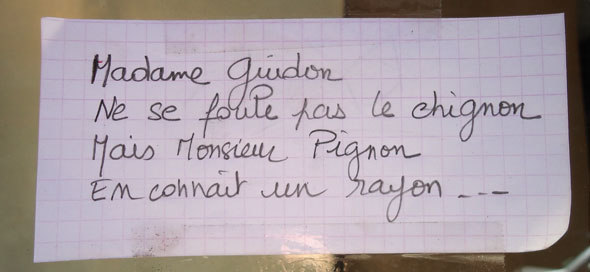 Madame Guidon
Ne se foule pas le chignon
Mais Monsieur Pignon
En connait un rayon ---